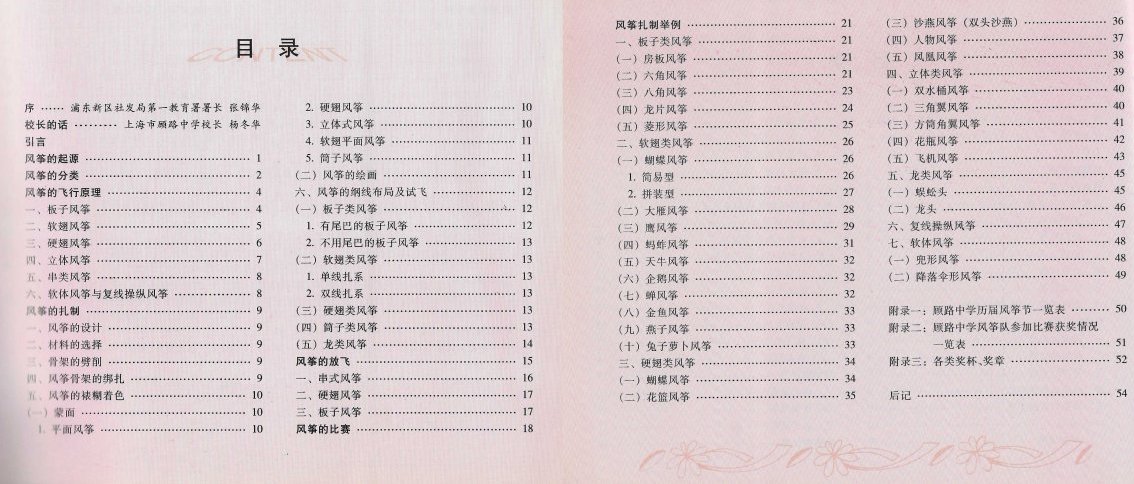 目 录
CONTENT
序 …… 浦东新区社发局第一教育署署长 张锦华
校长的话 ……… 上海市顾路中学校长 杨冬华
引言
风筝的起源 …… 1
风筝的分类 …… 2
风筝的飞行原理 …… 4
一、板子风筝 …… 4
二、软翅风筝 …… 5
三、硬翅风筝 …… 6
四、立体风筝 …… 7
五、串类风筝 …… 8
六、软体风筝与复线操纵风筝 …… 8
风筝的扎制 …… 9
一、风筝的设计 …… 9
二、材料的选择 …… 9
三、骨架的劈削 …… 9
四、风筝骨架的绑扎 …… 9
五、风筝的裱糊着色 …… 10
(一) 蒙面 …… 10
1. 平面风筝 …… 10
2. 硬翅风筝 …… 10
3. 立体式风筝 …… 10
4. 软翅平面风筝 …… 11
5. 筒子风筝 …… 11
(二) 风筝的绘画 …… 11
六、风筝的纲线布局及试飞 …… 12
(一) 板子类风筝 …… 12
1. 有尾巴的板子风筝 …… 12
2. 不用尾巴的板子风筝 …… 13
(二) 软翅类风筝 …… 13
1. 单线扎系 …… 13
2. 双线扎系 …… 13
(三) 硬翅类风筝 …… 13
(四) 筒子类风筝 …… 13
(五) 龙类风筝 …… 14
风筝的放飞 …… 15
一、串式风筝 …… 16
二、硬翅风筝 …… 17
三、板子风筝 …… 17
风筝的比赛 …… 18
风筝扎制举例 …… 21
一、板子类风筝 …… 21
(一) 房板风筝 …… 21
(二) 六角风筝 …… 21
(三) 八角风筝 …… 23
(四) 龙片风筝 …… 24
(五) 菱形风筝 …… 25
二、软翅类风筝 …… 26
(一) 蝴蝶风筝 …… 26
1. 简易型 …… 26
2. 拼装型 …… 27
(二) 大雁风筝 …… 28
(三) 鹰风筝 …… 29
(四) 蚂蚱风筝 …… 31
(五) 天牛风筝 …… 32
(六) 企鹅风筝 …… 32
(七) 蝉风筝 …… 32
(八) 金鱼风筝 …… 33
(九) 燕子风筝 …… 33
(十) 兔子萝卜风筝 …… 33
三、硬翅类风筝 …… 34
(一) 蝴蝶风筝 …… 34
(二) 花篮风筝 …… 35
(三) 沙燕风筝（双头沙燕） …… 36
(四) 人物风筝 …… 37
(五) 凤凰风筝 …… 38
四、立体类风筝 …… 39
(一) 双水桶风筝 …… 40
(二) 三角翼风筝 …… 40
(三) 方筒角翼风筝 …… 41
(四) 花瓶风筝 …… 42
(五) 飞机风筝 …… 43
五、龙类风筝 …… 45
(一) 蜈蚣头 …… 45
(二) 龙头 …… 46
六、复线操纵风筝 …… 47
七、软体风筝 …… 48
(一) 兜形风筝 …… 48
(二) 降落伞形风筝 …… 49
附录一：顾路中学历届风筝节一览表 …… 50
附录二：顾路中学风筝队参加比赛获奖情况
一览表 …… 51
附录三：各类奖杯、奖章 …… 52
后记 …… 54